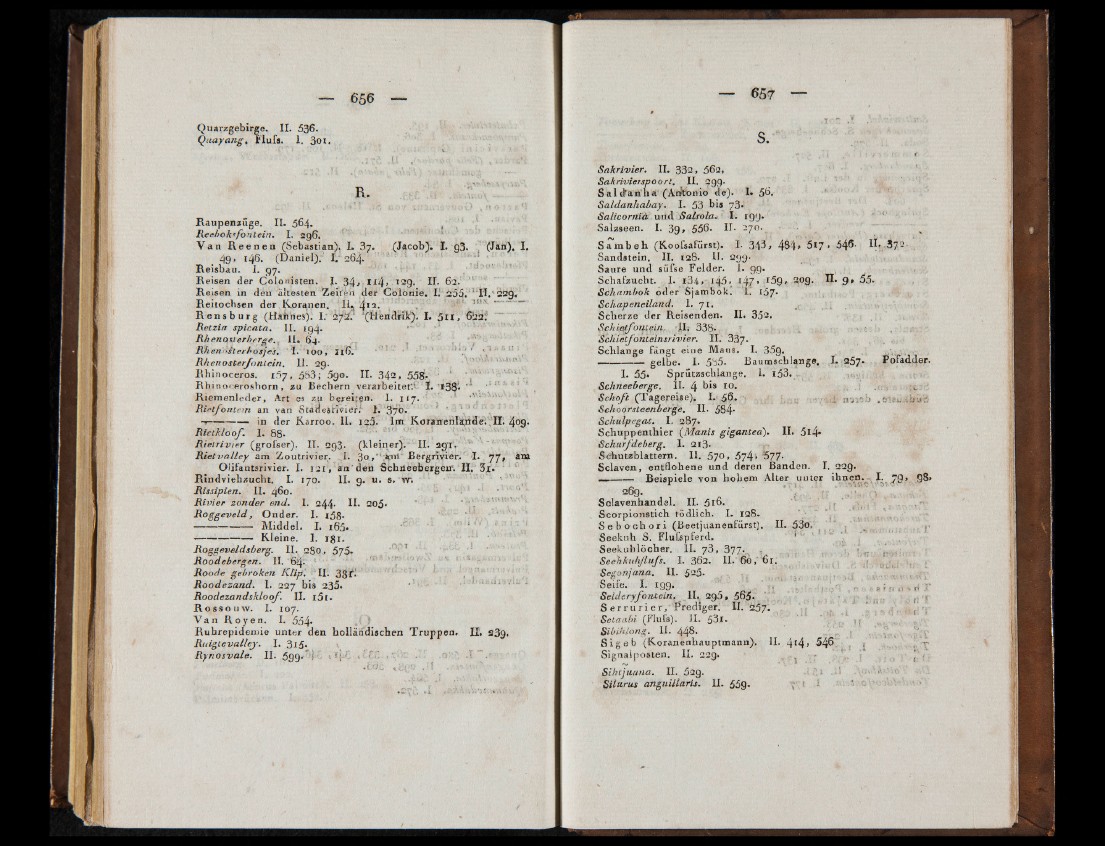 — 656 —
Quarzgebirge. II. 536.
Quayang, Flufs. I. 301.
R.
Raupenzüge. II. 564.
Reeboksfontein. I. 296.
Van Reenen (Sebastian). I. 37. (Jacob). I. 93. (Jan). I.
49, 146. (Daniel). I. 264.
Reisbau. I. 97.
Reisen der Colonisten. I. 34, 114, 129. II. 62.
Reisen in den ältesten Zeiten der Colonie. I. 255. II. 229.
Reitochsen der Koranen. II. 412.
Rensburg (Hannes). I. 272. (Hendrik). I. 511, 622.
Retzia spicata. II. 194.
Rhenosterberge. II. 64.
Rhenosterbosjes. I. 100, 116.
Rhenosterfontein. II. 29.
Rhinoceros. 157, 583; 590. II. 342, 558.
Rhinoceroshorn, zu Bechern verarbeitet. I. 138.
Riemenleder, Art es zu bereiten. I. 117.
Rietfontein an van Stadesrivier. I. 370.
——— in der Karroo. II. 125. Im Koranenlande. II. 409.
Rietkloof. I. 88.
Rietrivier (grofser). II. 293. (kleiner). II. 291.
Rietvalley am Zoutrivier. I. 30, am Bergrivier. I. 77, am
Olifantsrivier. I. 121, an den Schneebergen. II. 31.
Rindviehzucht. I. 170. II. 9. u. s. w.
Rissiplen. II. 460.
Rivier zonder end. I. 244. II. 205.
Roggeveld, Onder. I. 158.
——— Middel. I. 165.
——— Kleine. I. 181.
Roggeveldsberg. II. 280, 575.
Roodebergen. II. 64.
Roode gebroken Klip. II. 381.
Roodezand. I. 227 bis 235.
Roodezandskloof. II. 151.
Rossouw. I. 107.
Van Royen. I. 554.
Ruhrepidemie unter den holländischen Truppen. II. 239.
Ruigtevalley. I. 315.
Rynosvale. II. 599.
— 657 —
S.
Sakrivier. II. 332, 562.
Sakrivierspoort. II. 299.
Saldanha (Antonio de). I. 56.
Saldanhabay. I. 53 bis 73.
Salicornia und Salsola. I. 199.
Salzseen. I. 39, 556. II. 270.
Sambeh (Koofsafürst). I. 343, 484, 517, 546. II. 372.
Sandstein. II. 128. II. 299.
Saure und süfse Felder. I. 99.
Schafzucht. I. 134, 145, 147, 159, 209. II. 9, 55.
Schambok oder Sjambok. I. 157.
Schapeneiland. I. 71.
Scherze der Reisenden. II. 352.
Schietfontein. II. 338.
Schietfonteinsrivier. II. 337.
Schlange fängt eine Maus. I. 359.
——— gelbe. I. 535. Baumschlange. I. 257. Pofadder.
I. 55. Sprützschlange. I. 153.
Schneeberge. II. 4 bis 10.
Schoft (Tagereise). I. 56.
Schoorsteenberge. II. 584.
Schulpegat. I. 287.
Schuppenthier (Manis gigantea). II. 514.
Schurfdeberg. I. 213.
Schutzblattern. II. 570, 574, 577.
Sclaven, entflohene und deren Banden. I. 229.
——— Beispiele von hohem Alter unter ihnen. I. 79, 98,
269.
Sclavenhandel. II. 516.
Scorpionstich tödlich. I. 128.
Sebochori (Beetjuanenfürst). II. 530.
Seekuh S. Flufspferd.
Seekuhlöcher. II. 73, 377.
Seehkuhflufs. I. 362. II. 60, 61.
Segonjana. II. 525.
Seife. I. 199.
Selderyfontein. II. 295, 565.
Serrurier, Prediger. II. 257.
Setaabi (Flufs). II. 531.
Sibiklong. II. 448.
Sigeb (Koranenhauptmann). II. 414, 546
Signalposten. II. 229.
Sihtjuana. II. 529.
Silurus anguillaris. II. 559.